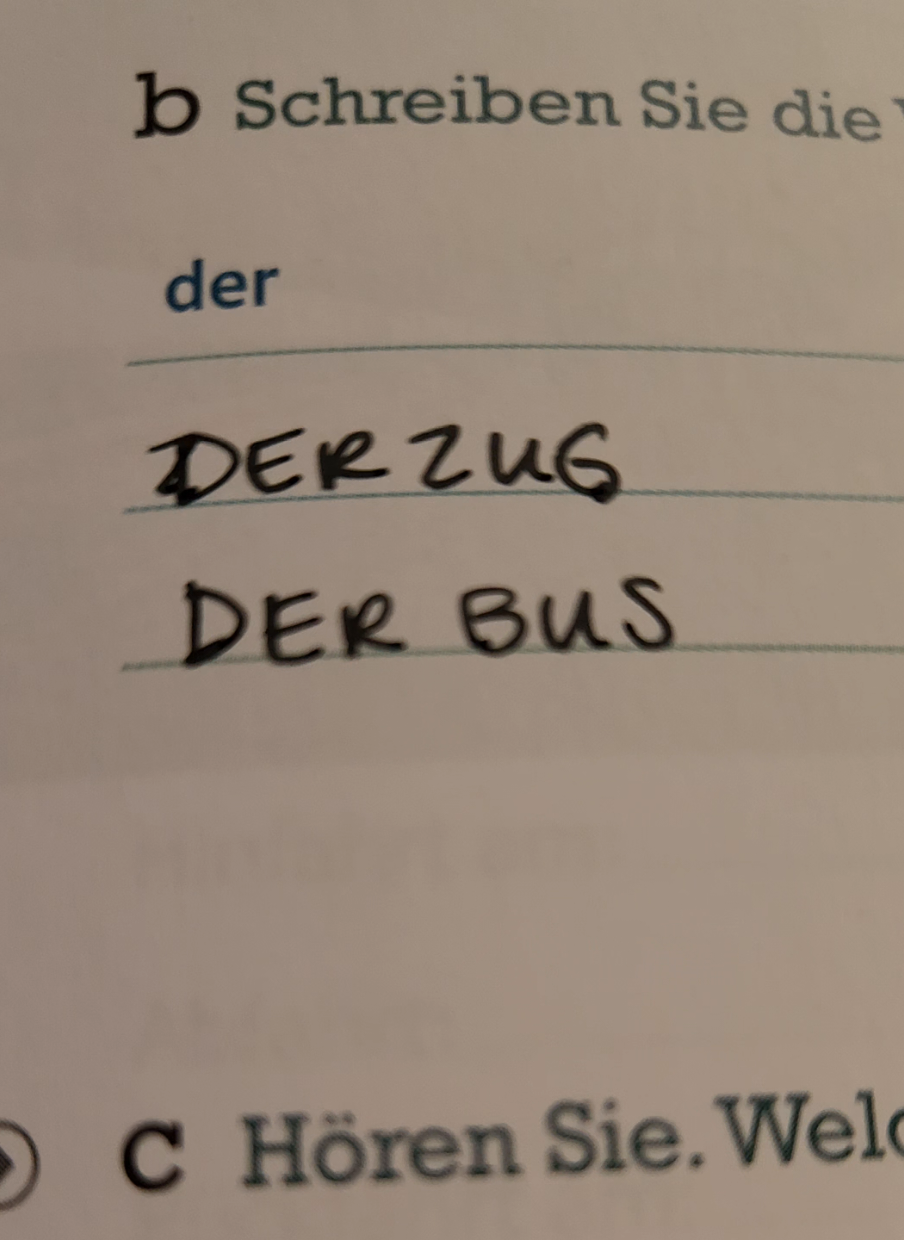 b Schreiben Sie die
der
DER ZUG
DER BUS
C Hören Sie. Welc